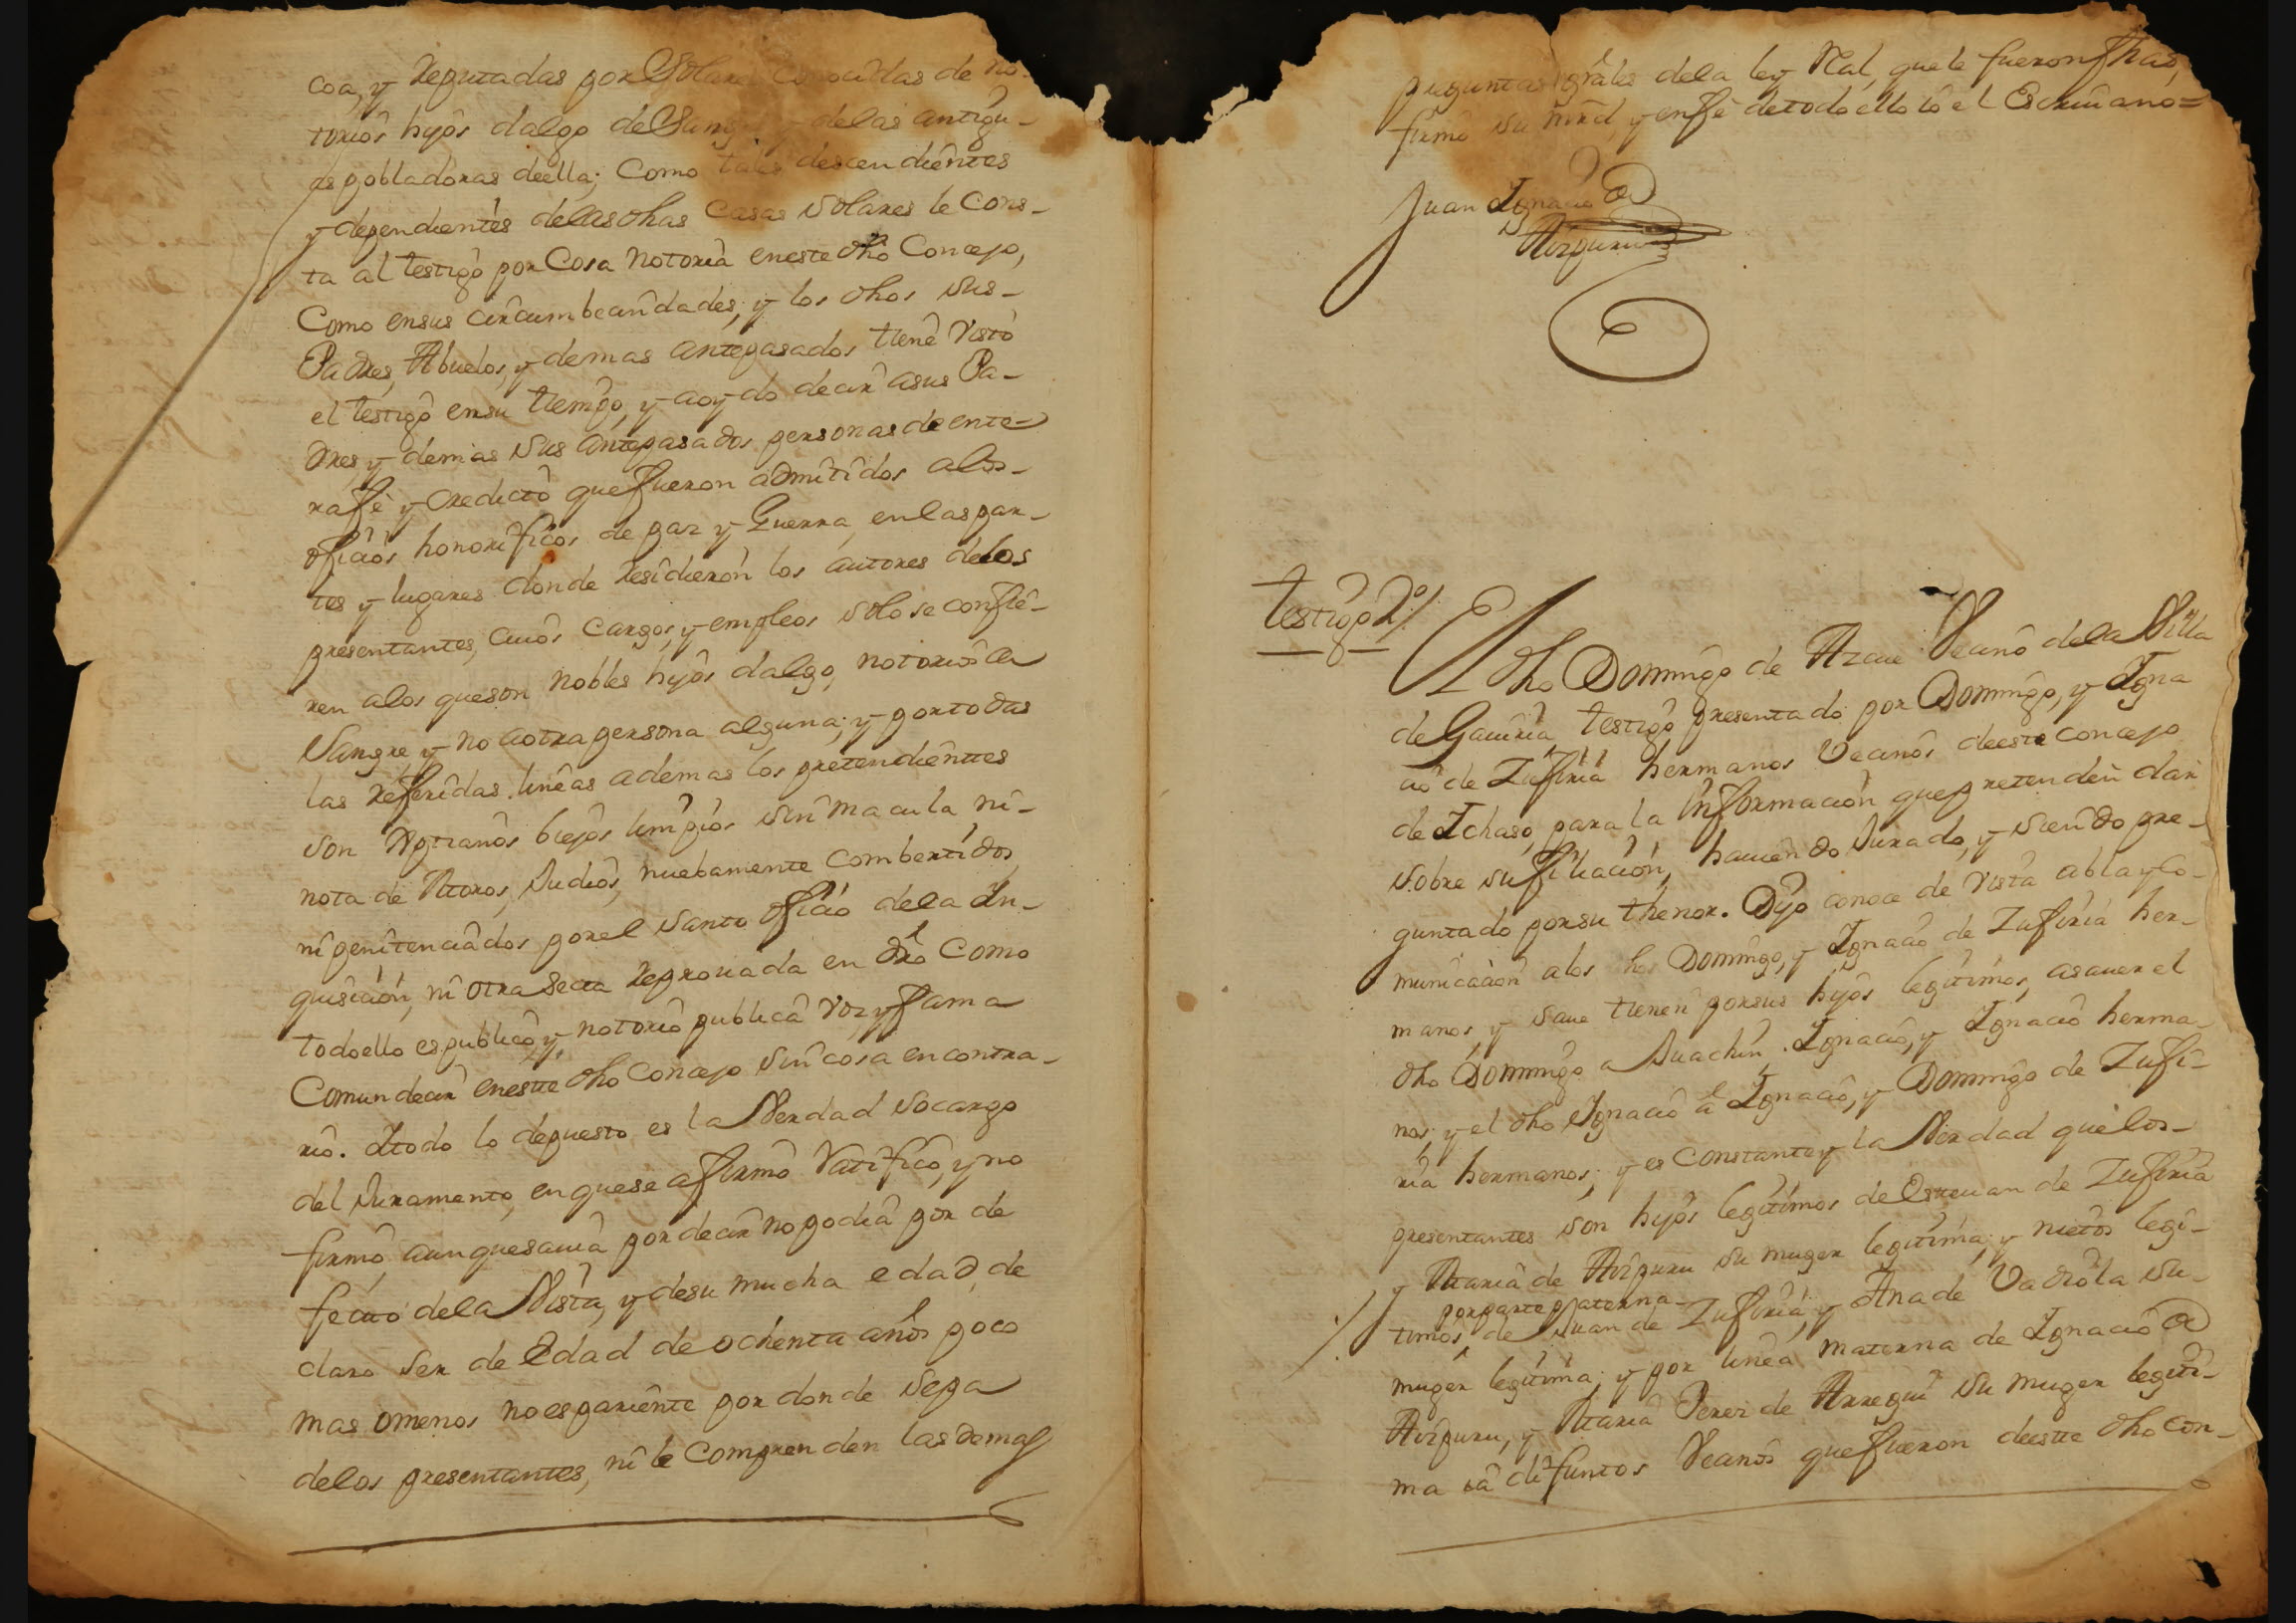 coa, y Reputadas por Solares Conocidas de no-
torios hijos dalgo de Sangre, y delas antigu-
as pobladoras deella; Como tales descendientes
y dependientes delas dhas Casas Solares le Cons-
ta al testigo por Cosa notoria eneste dho Concejo,
Como ensus circumbecindades, y los dhos sus-
Padres, Abuelos, y demas antepasados tiene visto
el testigo ensu tiempo, y aoydo decir asus Pa-
dres, y demas sus antepasados personas de ente-
rafe y credicto que fueron admitidos alos-
oficios honorificos de paz y Guerra, en las par-
tes y lugares donde residieron los autores delos
presentantes, cuios cargos, y empleos solo se confie-
ren alos queson nobles hijos dalgo, notorios de
Sangre, y no aotra persona alguna; y por todas
las referidas lineas ademas los pretendientes
son Xptianos biejos limpios sin macula ni-
nota de Moros, Judios, nuebamente combertidos,
ni penitenciados porel Santo oficio dela In-
quisicion, ni otra Secta Reprouada en dro Como
todoello espublico, y notorio publica voz, y fama
Comun decir eneste dho Concejo sin cosa en contra-
rio. Itodo lo depuesto es la Verdad socargo
del Juramento, en quese afirmo Ratifico, y no
firmo, aunquesauia por decir no podia por de
fecto dela Vista, y desu mucha edad, de
claro ser de Edad de ochenta años poco
mas omenos noespariente por donde sepa
delos presentantes, ni le Comprenden las demas
preguntas grales dela ley Real, quele fueron fhas,
firmo su mrd, y enfe detodo ello io el Escriuano=
Juan Ignacio de
Aizpuru
testigo 2º/.
El dho Domingo de Azcue Vecino dela Villa
de Gauiria testigo presentado por Domingo, y Igna
cio de Zufiria hermanos Vecinos deeste concejo
de Ichaso, para la Informacion que pretenden dar
sobre su filiacion, hauiendo Jurado, y siendo pre-
guntado por su thenor. Dijo conoce de vista abla y co-
municacion alos dhos Domingo, y Ignacio de Zufiria her-
manos, y saue tienen porsus hijos legitimos, asauer el
dho Domingo a Juachin Ignacio, y Ignacio herma-
nos; y el dho Ignacio a Ignacio, y Domingo de Zufi-
ria hermanos; y es Constante y la Verdad que los-
presentantes son hijos legitimos de Esteuan de Zufiria
y Maria de Aizpuru su muger legitima; y nietos legi-
por parte paterna-
timos de Juan de Zufiria, y Ana de Vadiola su-
muger legitima; y por linea materna de Ignacio de
Aizpuru, y Maria Perez de Arregui su muger legiti-
ma ia difuntos Vecinos que fueron deeste dho Con-